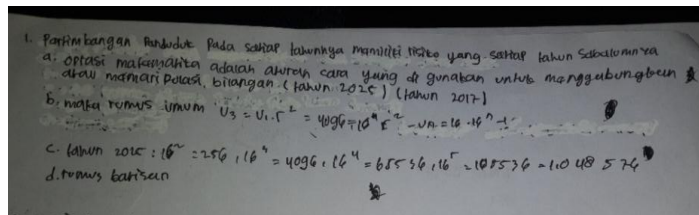 1. Partimbangan Penduduk Pada satiap tahunnya mamiliki risiko yang satiap tahun Sabalumnya
a. oprasi matamatika adalah aturan cara yang di gunakan untuk manggabungkan
atau mamari polasi, bilangan (tahun 2025) (tahun 2017)
b. maka rumus umum U3 = U1.r² = 4096 = 16 r² - Un = 16 .16
c. tahun 2025 : 16² = 256, 16 = 4096, 16⁴ = 65536, 16⁵ = 1.048 576
d. rumus barisan